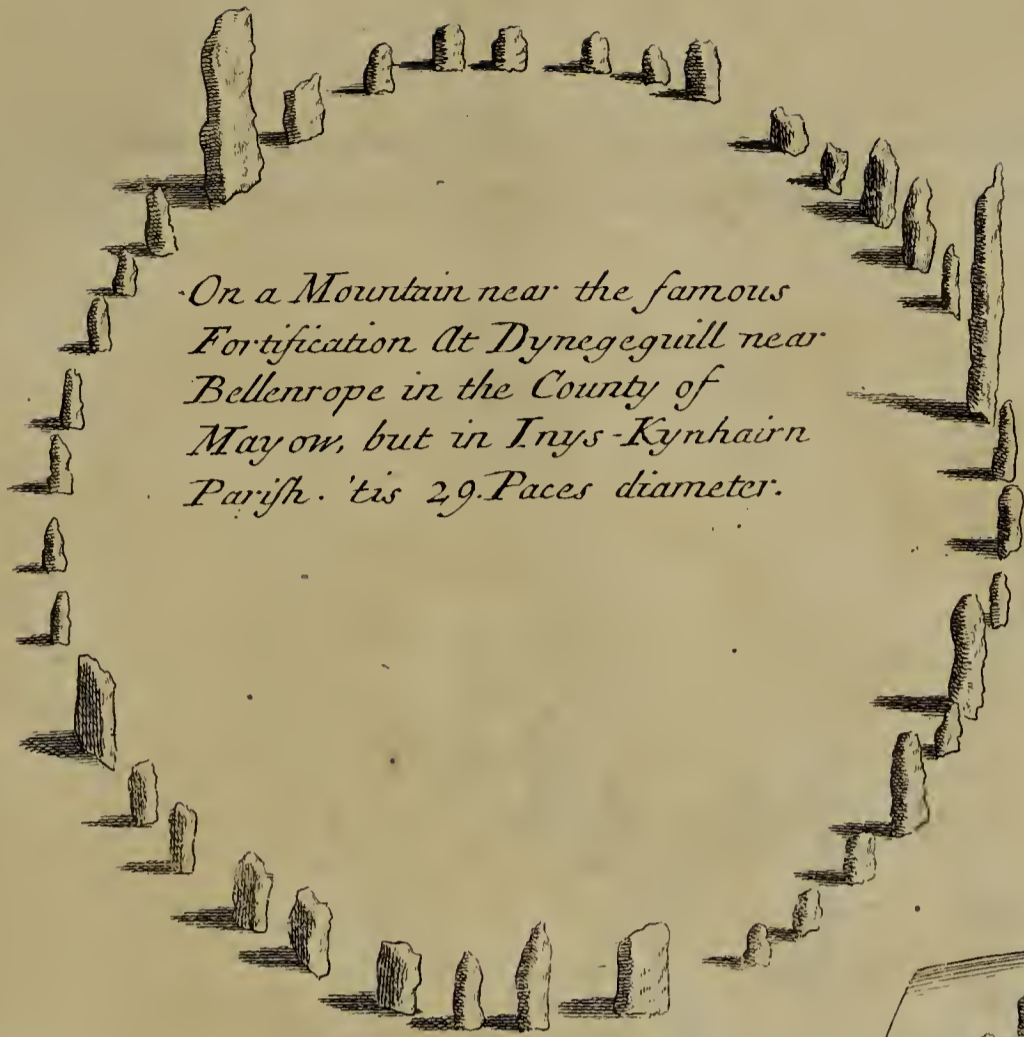 On a Mountain near the famous
Fortification At Dynegeguill near
Bellenrope in the County of
Mayow, but in Inys-Kynhairn
Pariſh. 'tis 29. Paces diameter.